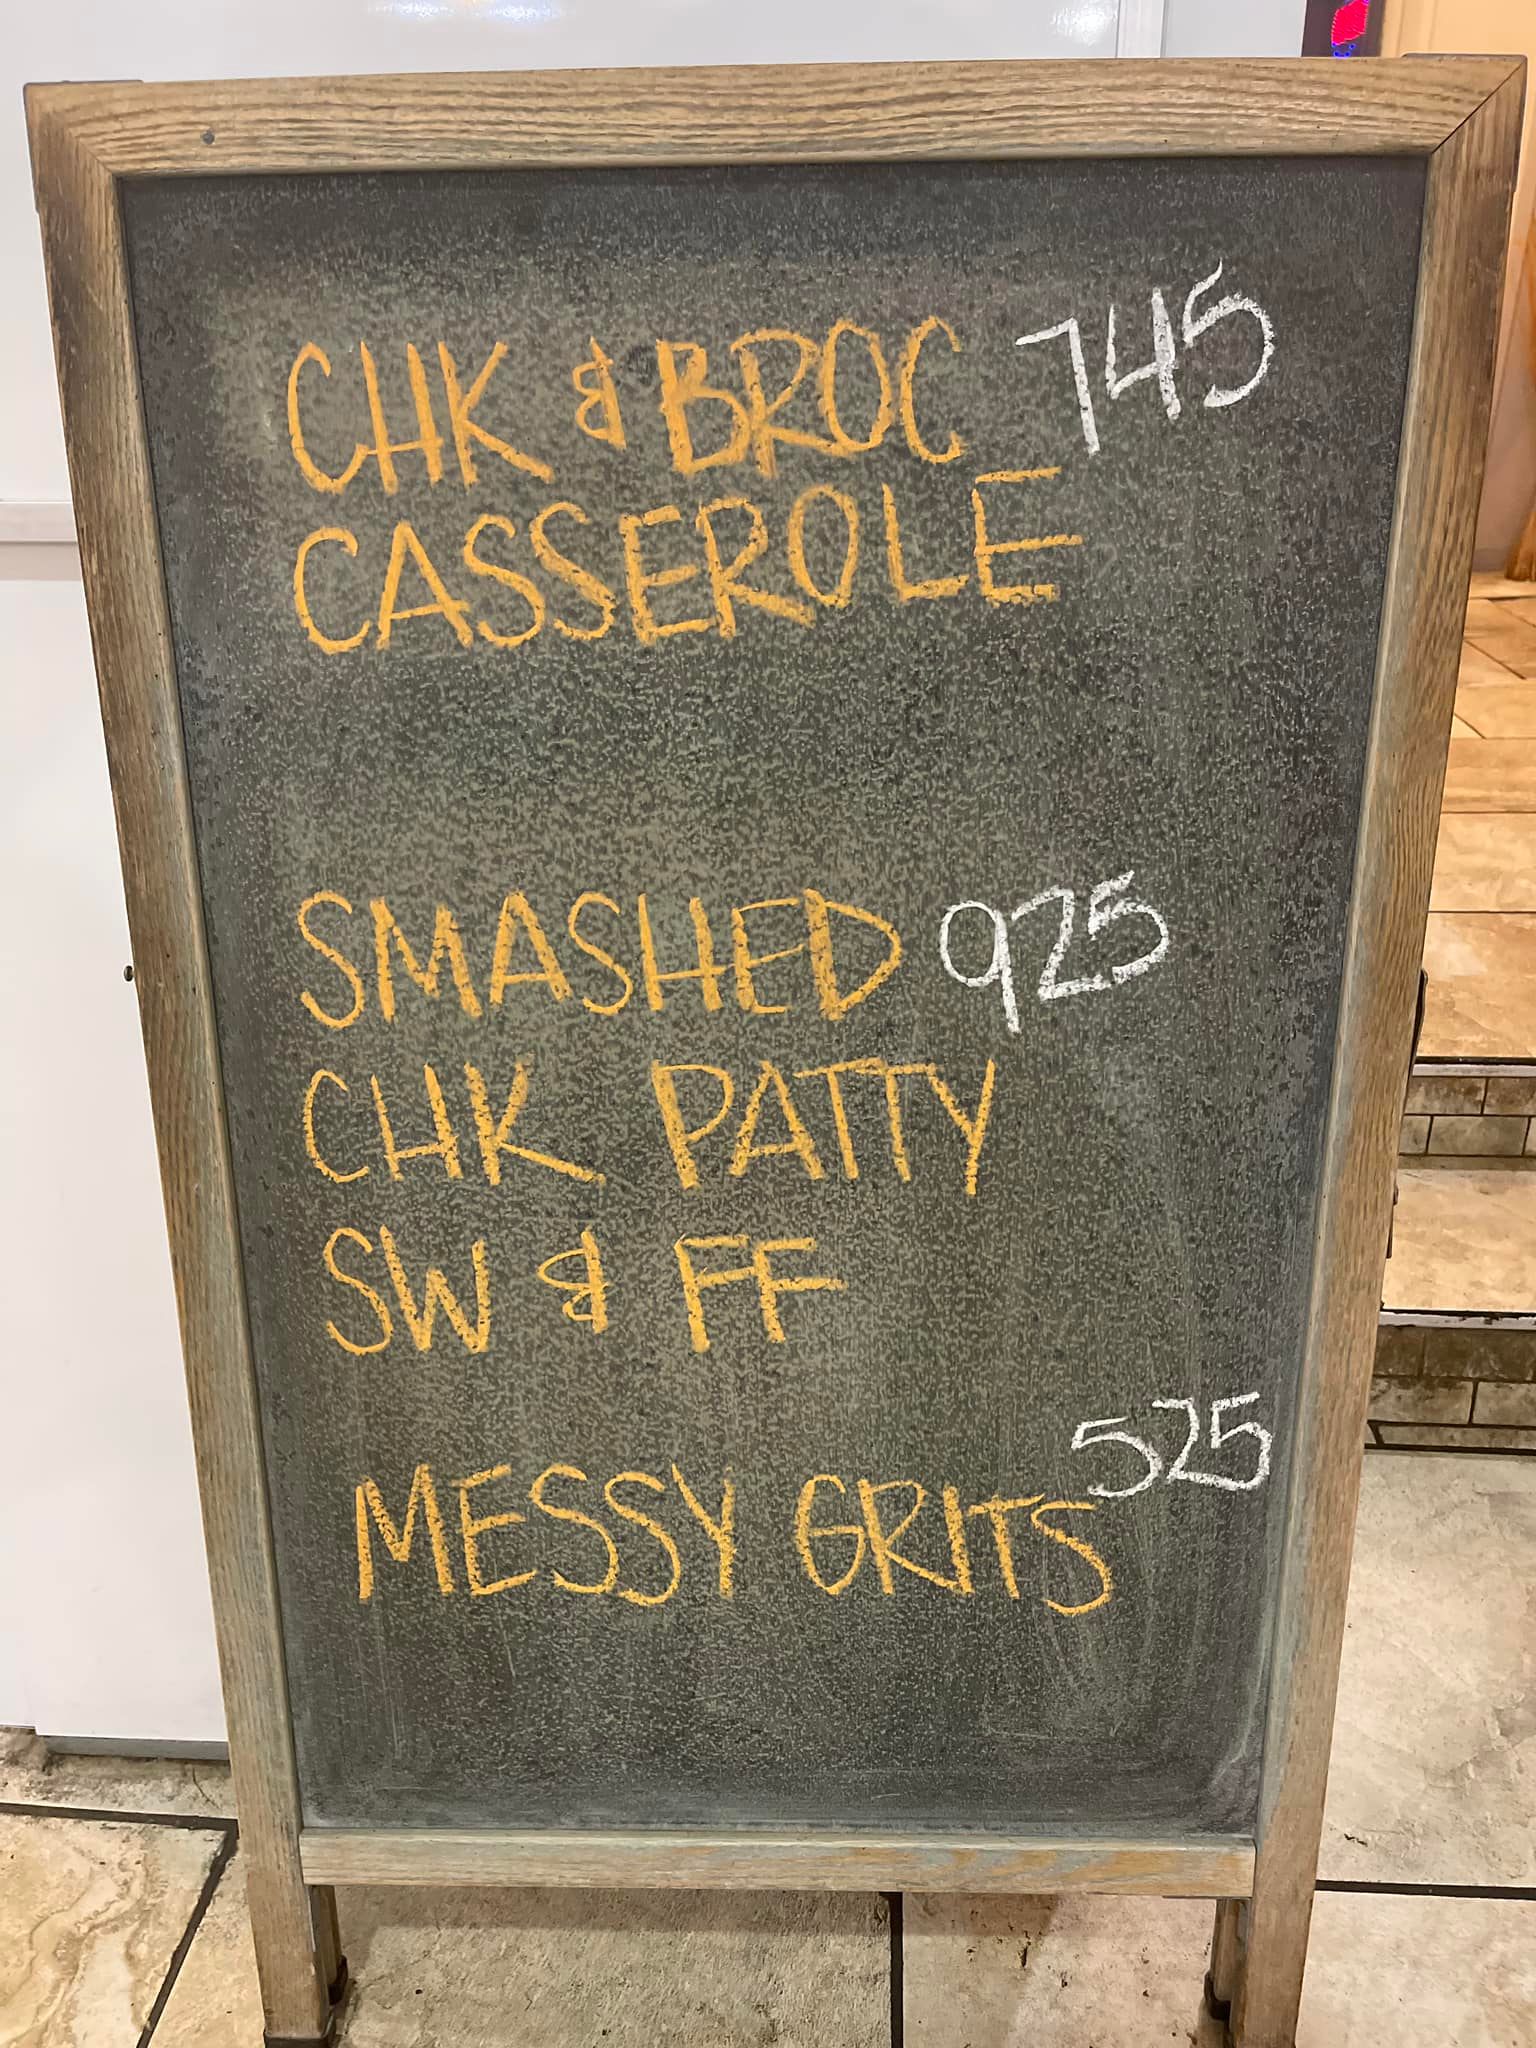 CHK & BROC 745
CASSEROLE
SMASHED 925
CHK PATTY
SW & FF
525
MESSY GRITS